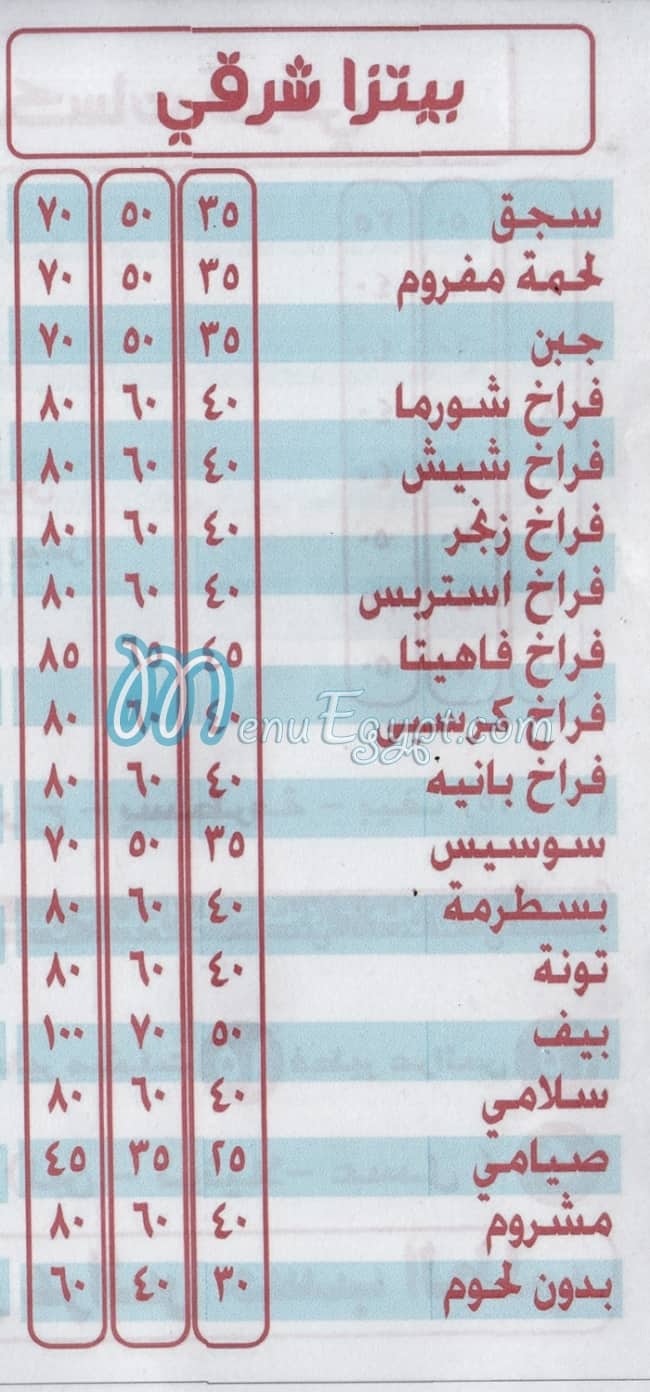 بيتزا شرقي
سجق ٣٥ ٥٠ ٧٠
لحمة مفروم ٣٥ ٥٠ ٧٠
جبن ٣٥ ٥٠ ٧٠
فراخ شورما ٤٠ ٦٠ ٨٠
فراخ شيش ٤٠ ٦٠ ٨٠
فراخ زنجر ٤٠ ٦٠ ٨٠
فراخ استربس ٤٠ ٦٠ ٨٠
فراخ فاهيتا ٤٥ ٦٥ ٨٥
فراخ كرسبي ٤٠ ٦٠ ٨٠
MenuEgypt.com
فراخ بانيه ٤٠ ٦٠ ٨٠
سوسيس ٣٥ ٥٠ ٧٠
بسطرمة ٤٠ ٦٠ ٨٠
تونة ٤٠ ٦٠ ٨٠
بيف ٥٠ ٧٠ ١٠٠
سلامي ٤٠ ٦٠ ٨٠
صيامي ٢٥ ٣٥ ٤٥
مشروم ٤٠ ٦٠ ٨٠
بدون لحوم ٣٠ ٤٠ ٦٠